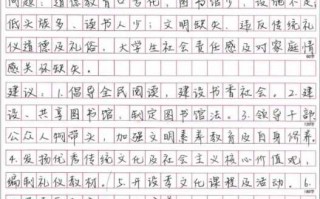 问题：道德教育口号化，图书馆少，设施不足
低文版多，读书人少；文明缺失，违反传统礼
仪道德及礼俗，大学生社会责任感及对家庭情
感关怀缺失。
建议：1.倡导全民阅读，建设书香社会。2.建
设、共享图书馆，制定图书馆法。3.领导干部
公众人物带头，加强文明素养教育及自身修养。
4.发扬优秀传统文化及社会主义核心价值观，
编制礼仪教材。5.开设秀文化课程及活动。6.